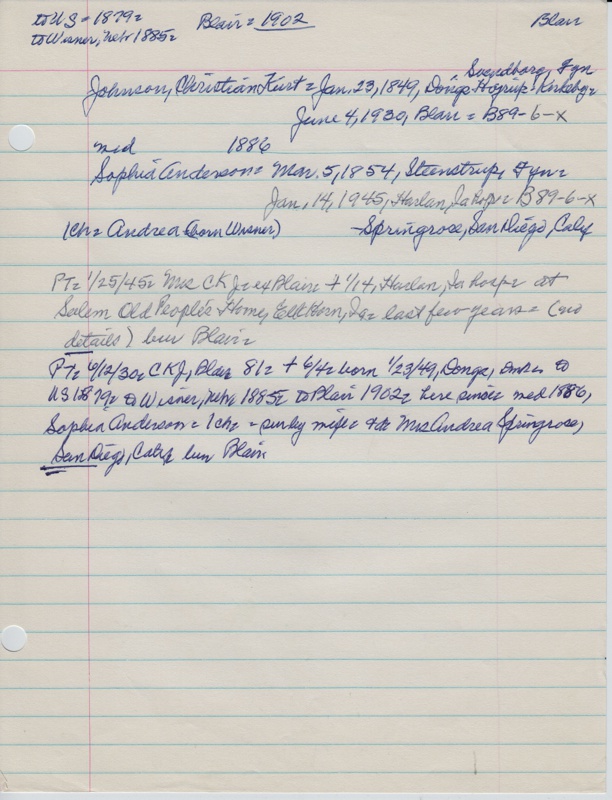 to US = 1879= Blair = 1902 Blair
to Wisner, Nebr 1885=
Svendborg, Fyn
Johnson, Christian Kurt = Jan. 23, 1849, Donge Kirkeby=
June 4, 1930, Blair = B89-6-x
md 1886
Sophia Anderson = Mar. 5, 1854, Steenstrup, Fyn=
Jan, 14, 1945, Harlan, Ia hosp= B89-6-x
1ch= Andrea (born Wisner) -Springrose, San Diego, Calif
PT= 1/25/45= Mrs CKJ= ex Blair= + 1/14, Harlan, Ia hosp= at
Salem Old People's Home, Elk Horn, Ia= last few years = (no
details) bur Blair=
PT= 6/12/30= CKJ, Blair 81= + 6/4= born 1/23/49, Donge, to
US 1879= to Wisner, Nebr 1885= to Blair 1902= here since= md 1886,
Sophia Anderson = 1ch= = surv by wife= + da Mrs Andrea Springrose,
San Diego, Calif= bur Blair